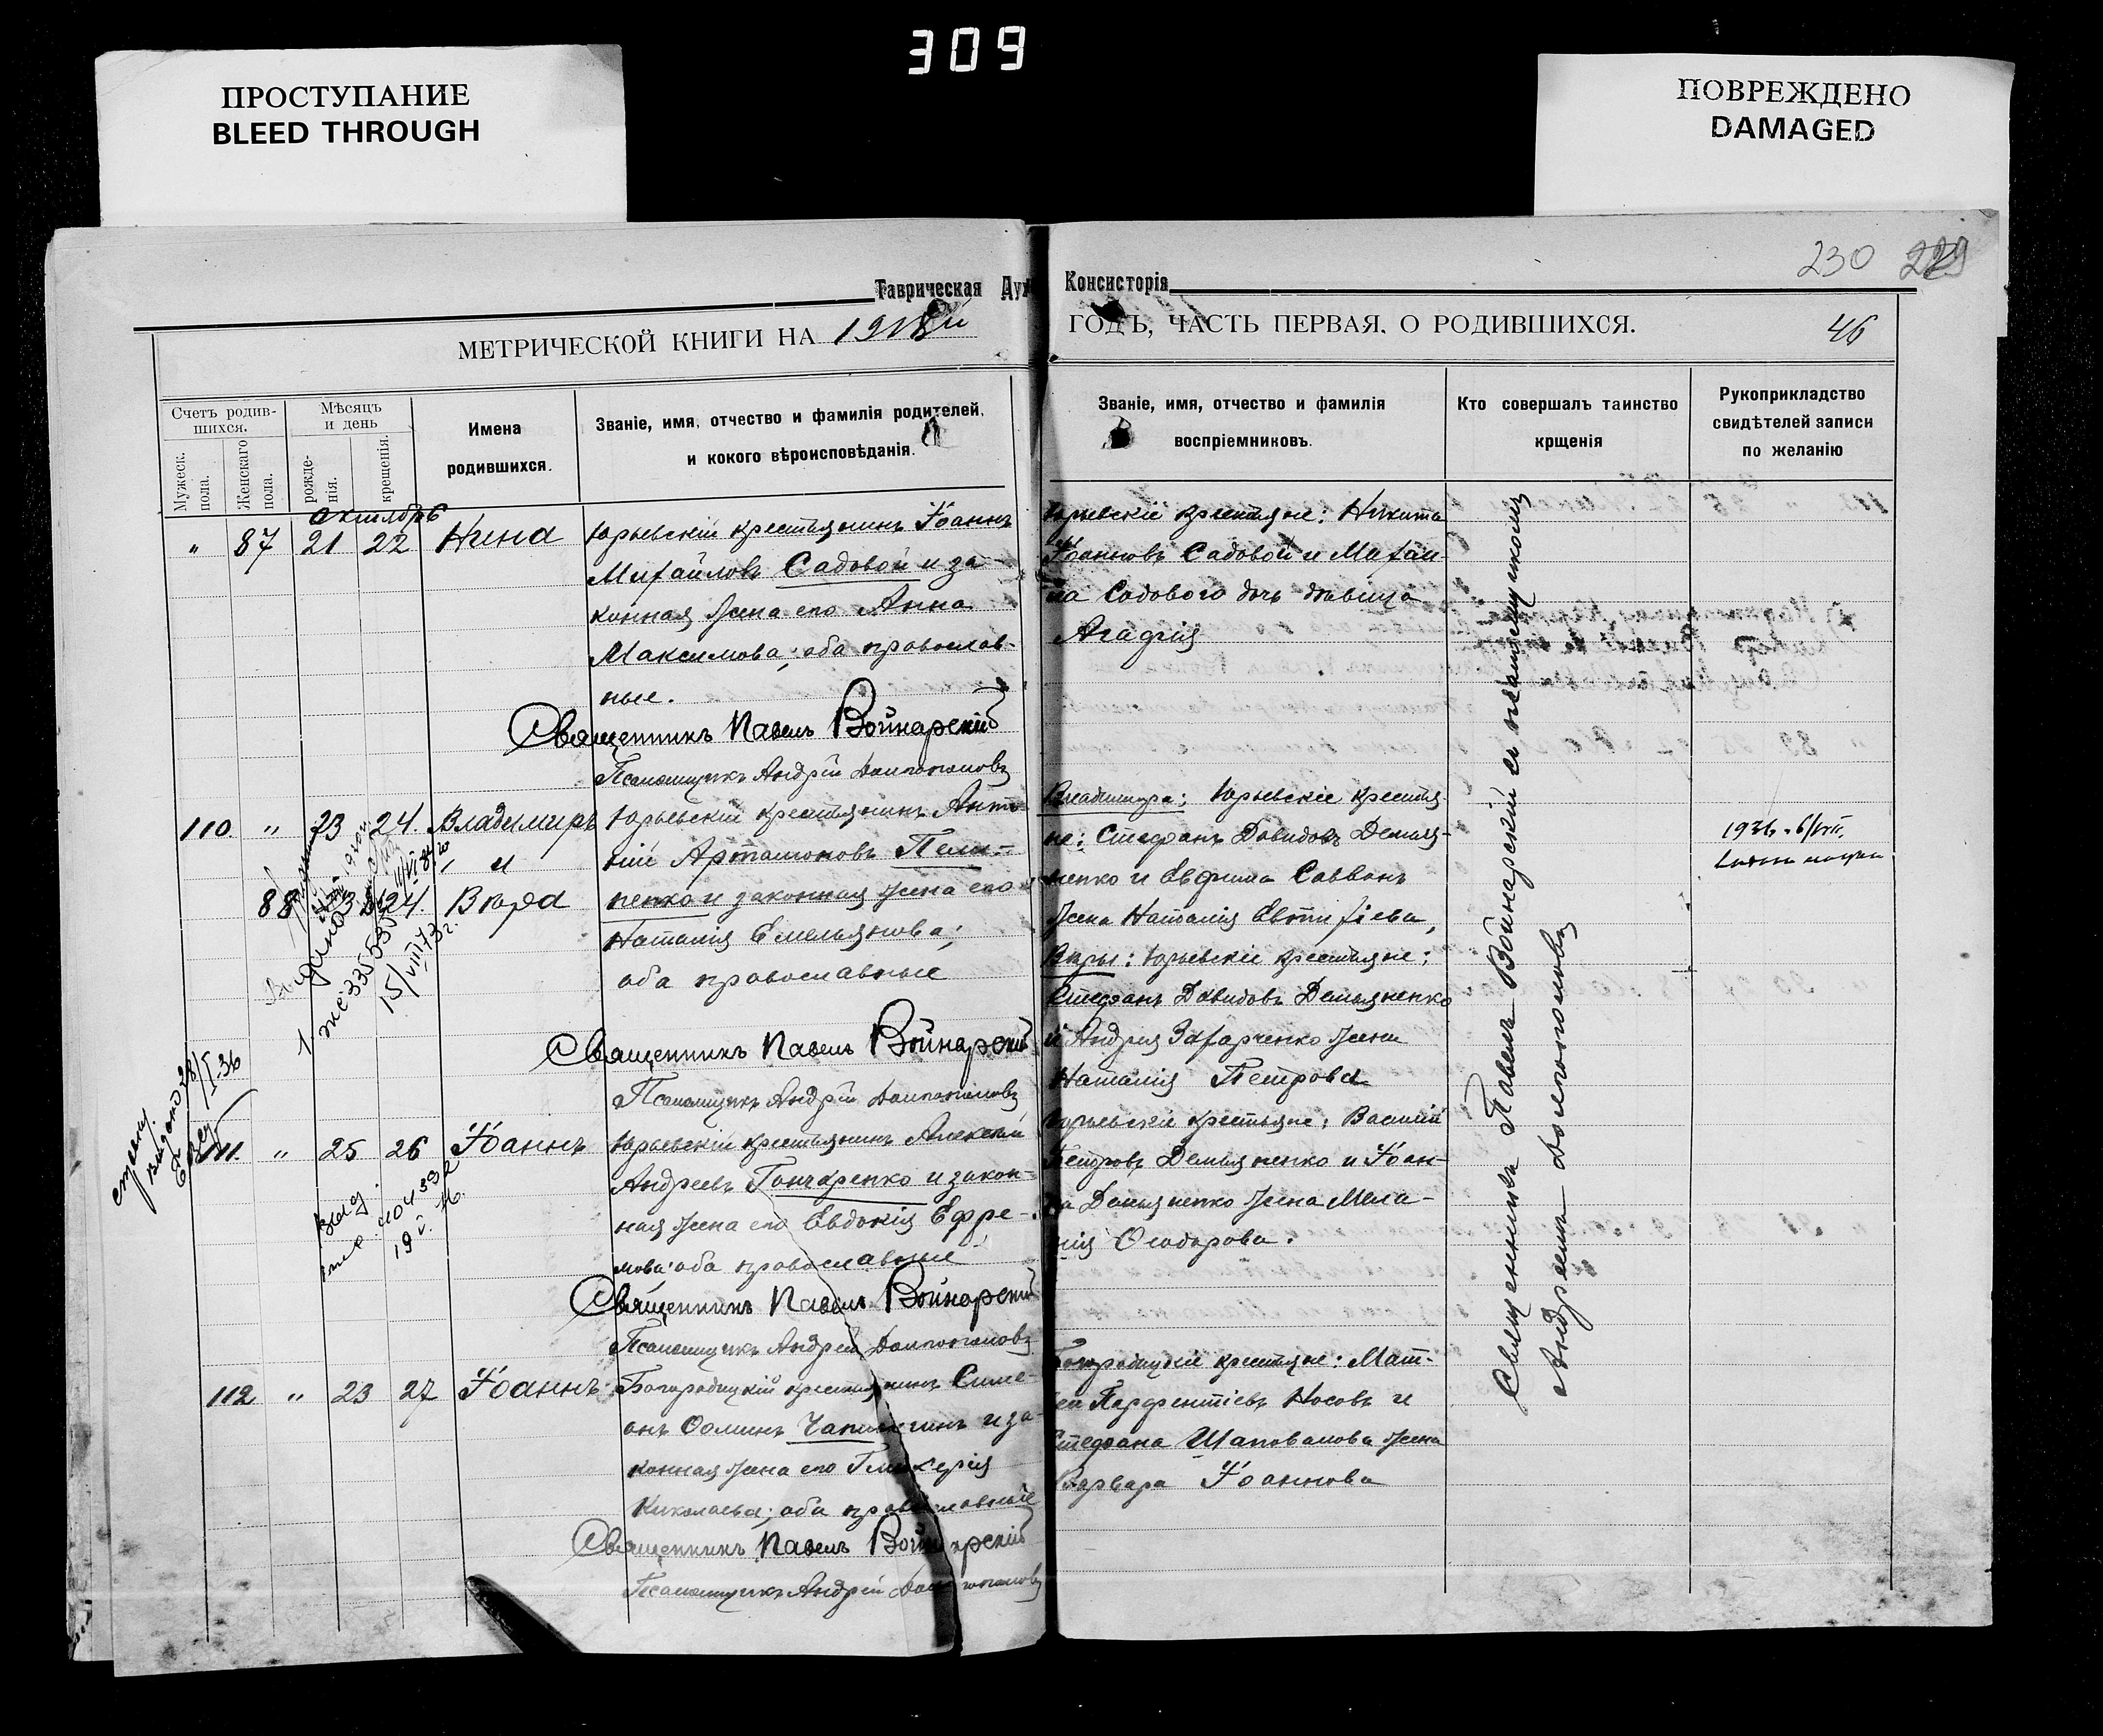 309
ПРОСТУПАНИЕ
BLEED THROUGH
ПОВРЕЖДЕНО
DAMAGED
230 229
Таврическая Дух Консисторія
МЕТРИЧЕСКОЙ КНИГИ НА 1918й ГОДЪ, ЧАСТЬ ПЕРВАЯ, О РОДИВШИХСЯ.
46
Счетъ родив-
шихся.
Мужеск. пола.
Женскаго пола.
Мѣсяцъ
и день
рожде-
нія.
крещенія.
Имена
родившихся.
Званіе, имя, отчество и фамилія родителей,
и кокого вѣроисповѣданія.
Званіе, имя, отчество и фамилія
воспріемниковъ.
Кто совершалъ таинство
крщенія
Рукоприкладство
свидѣтелей записи
по желанію
октябрь
" 87 21 22 Нина
Юрьевскій крестьянинъ Іоаннъ
Михайловъ Садовой и за-
конная жена его Анна
Максимова; оба православ-
ные.
Священникъ Павелъ Войнарскій
Псаломщикъ Андрей
Юрьевскіе крестьяне: Никита
Іоанновъ Садовой и Михаи-
ла Садового дочь дѣвица
Агафія
110 " 23 24. Владимиръ
" и
88 23 24. Вѣра
Юрьевскій крестьянинъ Анто-
ній Артамоновъ Пели-
пенко и законная жена его
Наталія Емельянова;
оба православные
Священникъ Павелъ Войнарскій
Псаломщикъ Андрей
Владимира: Юрьевскіе крестья-
не: Стефанъ Давидовъ Демья-
ненко и Евфима
жена Наталія Евтихіева,
Вѣры: Юрьевскіе крестьяне:
Стефанъ Давидовъ Демьяненко
и Андрея Захарченко жена
Наталія Петрова
Выдано
же: 335530
15/VIII 43 г.
28/I-36
111. " 25 26 Іоаннъ
Юрьевскій крестьянинъ Алексѣй
Андреевъ Гончаренко и закон-
ная жена его Евдокія Ефре-
мова; оба православные
Священникъ Павелъ Войнарскій
Псаломщикъ Андрей
Юрьевскіе крестьяне: Василій
Петровъ Демьяненко и Іоан-
на Демьяненко жена Мела-
нія Ѳеодорова.
112 " 23 27 Іоаннъ
Богородицкій крестьянинъ Симе-
онъ Ѳоминъ Чаплыгинъ и за-
конная жена его Гликерія
Николаева; оба православные
Священникъ Павелъ Войнарскій
Псаломщикъ Андрей
Богородицкіе крестьяне: Мат-
ѳей Парфентіевъ Носовъ и
Стефана Шаповалова жена
Варвара Іоаннова
Священникъ Павелъ Войнарскій съ псаломщикомъ
Андреемъ